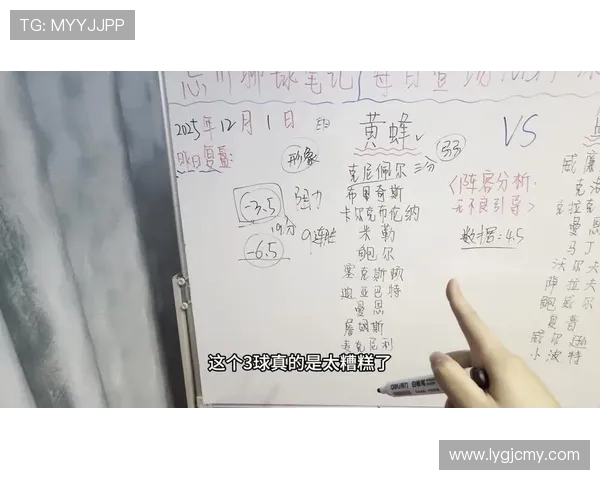 TG: MYYJJPP
2025年12月1日
黄蜂
VS
昨日复盘:
形象
克尼佩尔 三分
弱
威廉
布里奇斯
<阵容分析·
克
-3.5
卡尔克布伦纳
无不良引导>
克拉克
19分
9连胜
米勒
数据:4.5
曼恩
-6.5
鲍尔
马丁
塞克斯顿
沃尔夫
迪亚巴特
阵拉夫
曼恩
鲍威尔
詹姆斯
夏普
麦克尼利
威尔逊
小波特
这个3球真的是太糟糕了
deli得力 白板笔
www.lygjcmy.com